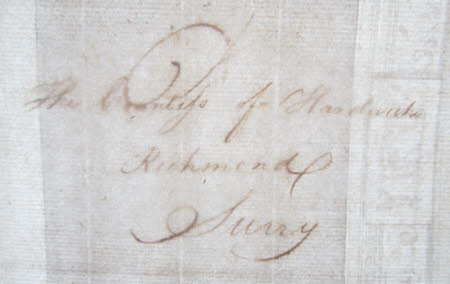 The Countess of Hardwicke
Richmond
Surry